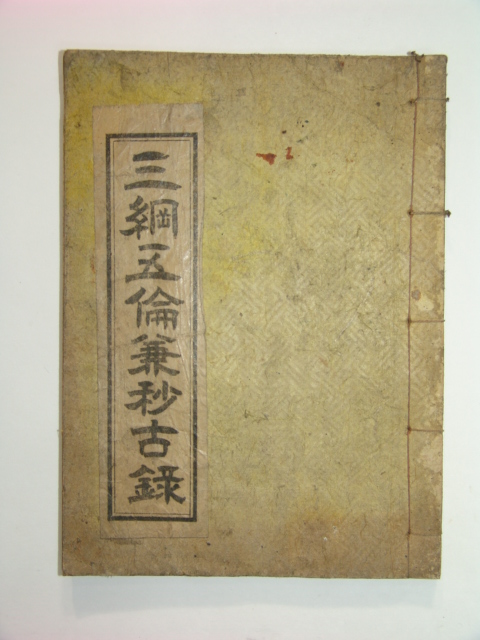 三綱五倫兼秒古錄